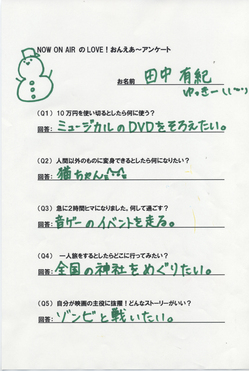 NOW ON AIR のLOVE！おんえあ～アンケート
お名前 田中 有紀
ゆっきー
（Q1） 10万円を使い切るとしたら何に使う？
回答: ミュージカルのDVDをそろえたい。
（Q2） 人間以外のものに変身できるとしたら何になりたい？
回答: 猫ちゃん
（Q3） 急に2時間ヒマになりました。何して過ごす？
回答: 音ゲーのイベントを走る。
（Q4） 一人旅をするとしたらどこに行ってみたい？
回答: 全国の神社をめぐりたい。
（Q5） 自分が映画の主役に抜擢！どんなストーリーがいい？
回答: ゾンビと戦いたい。